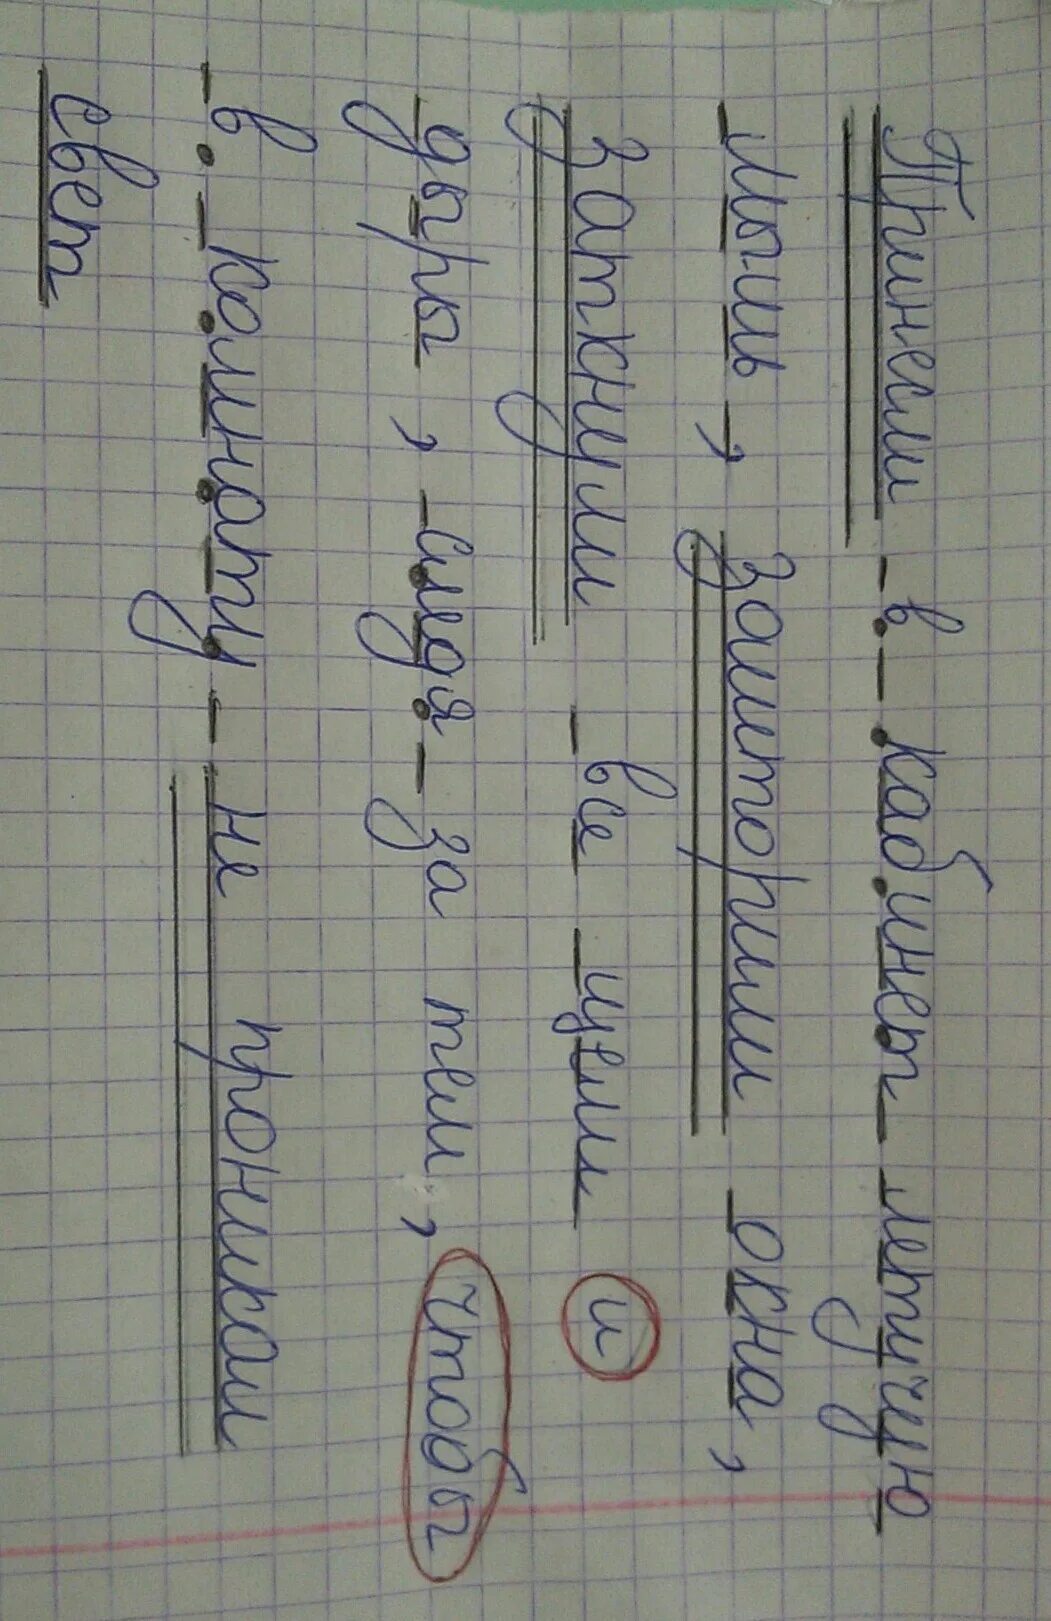 Принесли в кабинет летучую
мышь, зашторили окна,
заткнули все щели и
дыры, следя за тем, чтобы
в комнату не проникал
свет